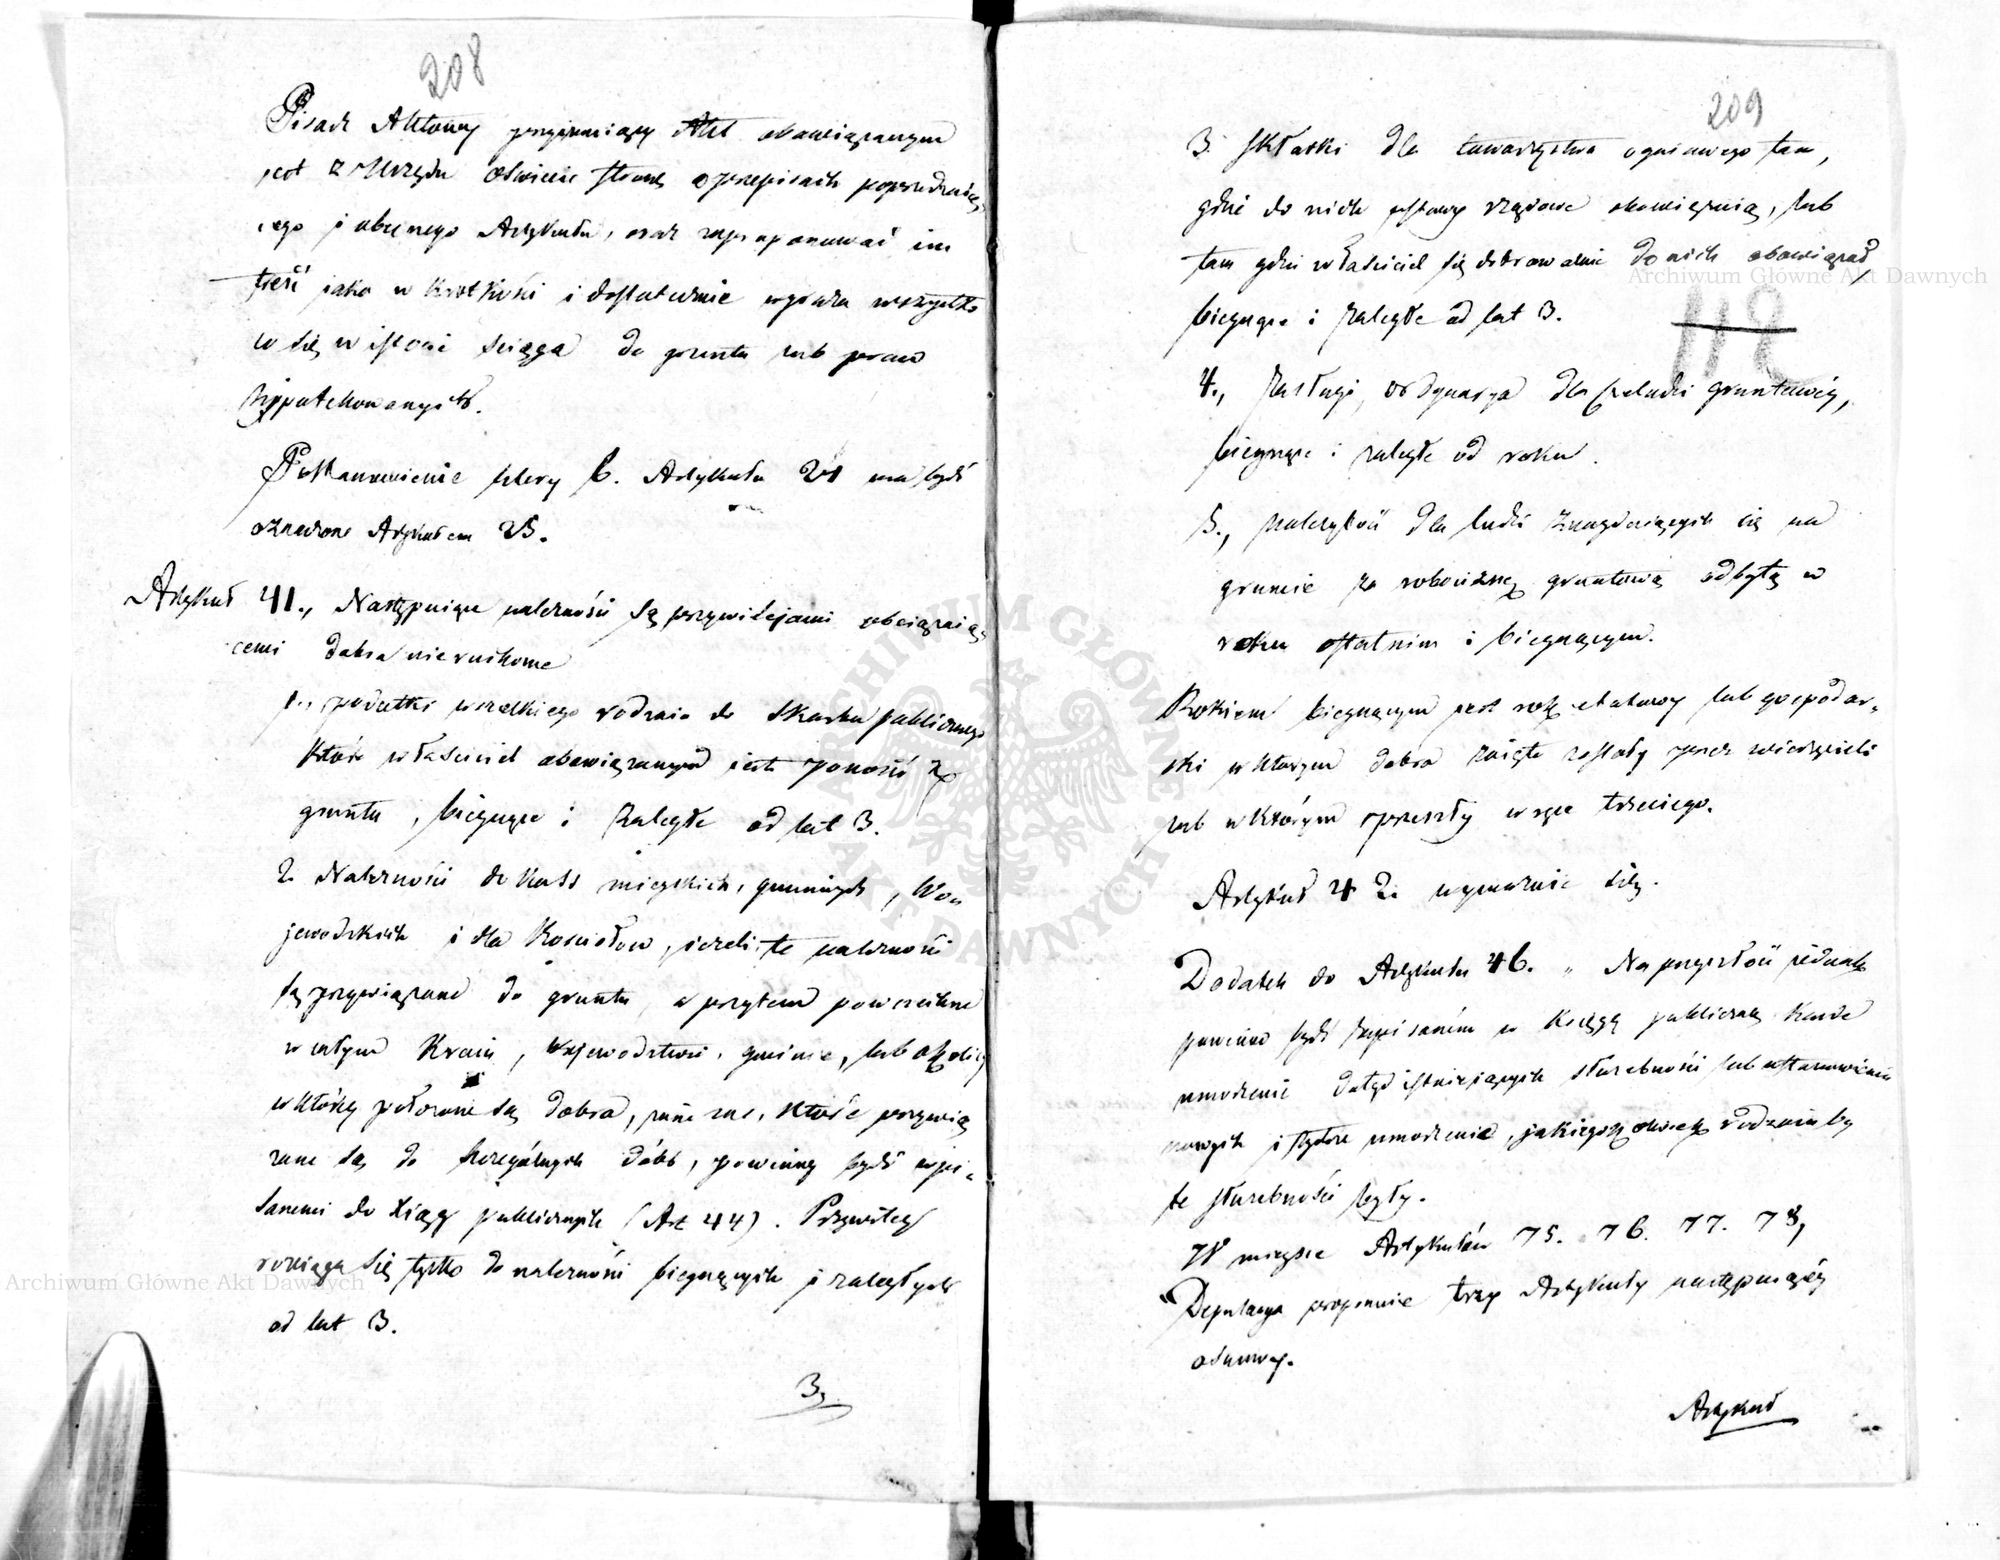 208
Pisarz Aktowy przyjmujący Akt obowiązanym
jest z Urzędu oświecić strony o przepisach poprzedzają
cego i obecnego Artykułu, oraz zaproponować im
treść jako w krótkości i dostatecznie wyraża wszystko
co się w istocie ściąga do gruntu lub praw
hyppotekowanych.
Postanowienie litery b. Artykułu 21 ma bydź
oznaczone Artykułem 25.
Artykuł 41., Następujące należności są przywilejami obciążają
cemi dobra nieruchome
1. podatki wszelkiego rodzaju do Skarbu publicznego
które właściciel obowiązanym jest ponosić z
gruntu, bieżące i zaległe od lat 3.
2. Należności do kass mieyskich, gminnych, Wo
jewodzkich i dla Kościołow, jeżeli te należności
są przywiązane do gruntu, a przytem powszechne
w całym Kraju, Wojewodztwie, gminie, lub okolicy
w którey położone są dobra, inne zaś, które przywią
zane są do szczególnych dóbr, powinny bydź wpi-
sanemi do Xiąg publicznych (Art 44). Przywiley
rozciąga się tylko do należności bieżących i zaległych
od lat 3.
3,
209
3. Składki dla towarzystwa ogniowego tam,
gdzie do nich ustawy rządowe obowiązują, lub
tam gdzie właściciel się dobrowolnie do nich obowiązał
bieżące i zaległe od lat 3.
112
4., Zasługi, ordynarya dla czeladzi gruntowéy,
bieżące i zaległe od roku.
5., należytość dla ludzi znaydujących się na
gruncie za robociznę gruntową odbytą w
roku ostatnim i bieżącym.
Rokiem bieżącym jest rok etatowy lub gospodar-
ski w którym dobra zajęte zostały przez wierzycieli
lub w którym przeszły w ręce trzeciego.
Artykuł 42. wymazuie się.
Dodatek do Artykułu 46. „ Na przyszłość jednak
powinno bydź zapisaném w Księgę publiczną każde
umorzenie dotąd istniejących służebności lub ustanowienie
nowych i tychże umorzenie, jakiegożkolwiek rodzaju by
te służebności były.
W mieysce Artykułów 75. 76. 77. 78,
Deputacya proponuie trzy Artykuły następującéy
osnowy.
Artykuł
Archiwum Główne Akt Dawnych
Archiwum Główne Akt Dawnych
ARCHIWUM GŁÓWNE AKT DAWNYCH